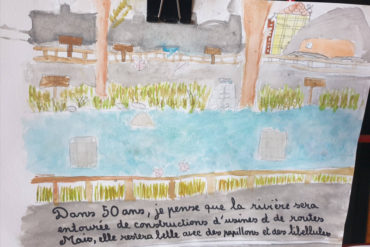 Dans 50 ans, je pense que la rivière sera
entourée de constructions d'usines et de routes
Mais, elle restera belle avec des papillons et des libellules